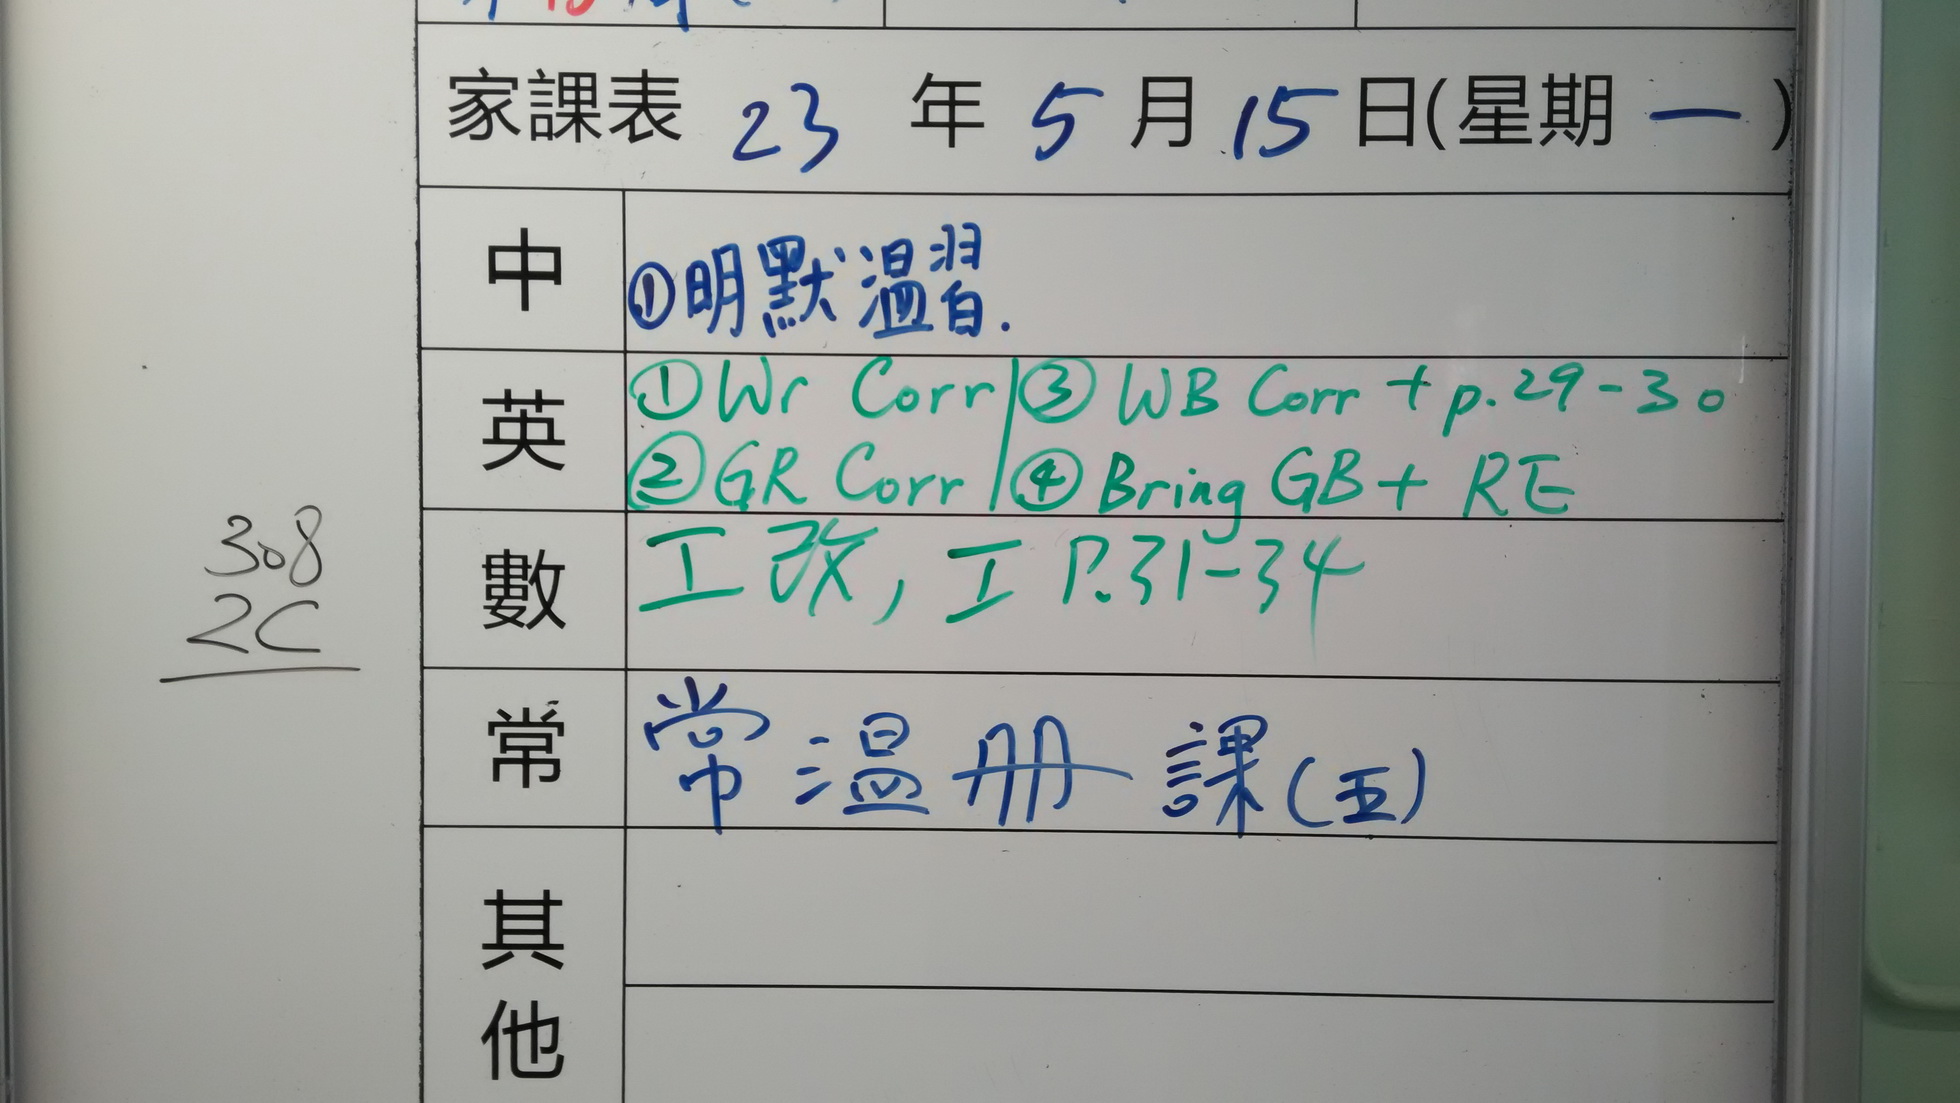 家課表 23 年 5 月 15 日(星期 一 )
中
①明默溫習.
英
①Wr Corr ③ WB Corr + p.29-30
②GR Corr ④ Bring GB + RE
數
工改, 工 P.31-34
常
常溫冊 課(五)
其他
308
2C